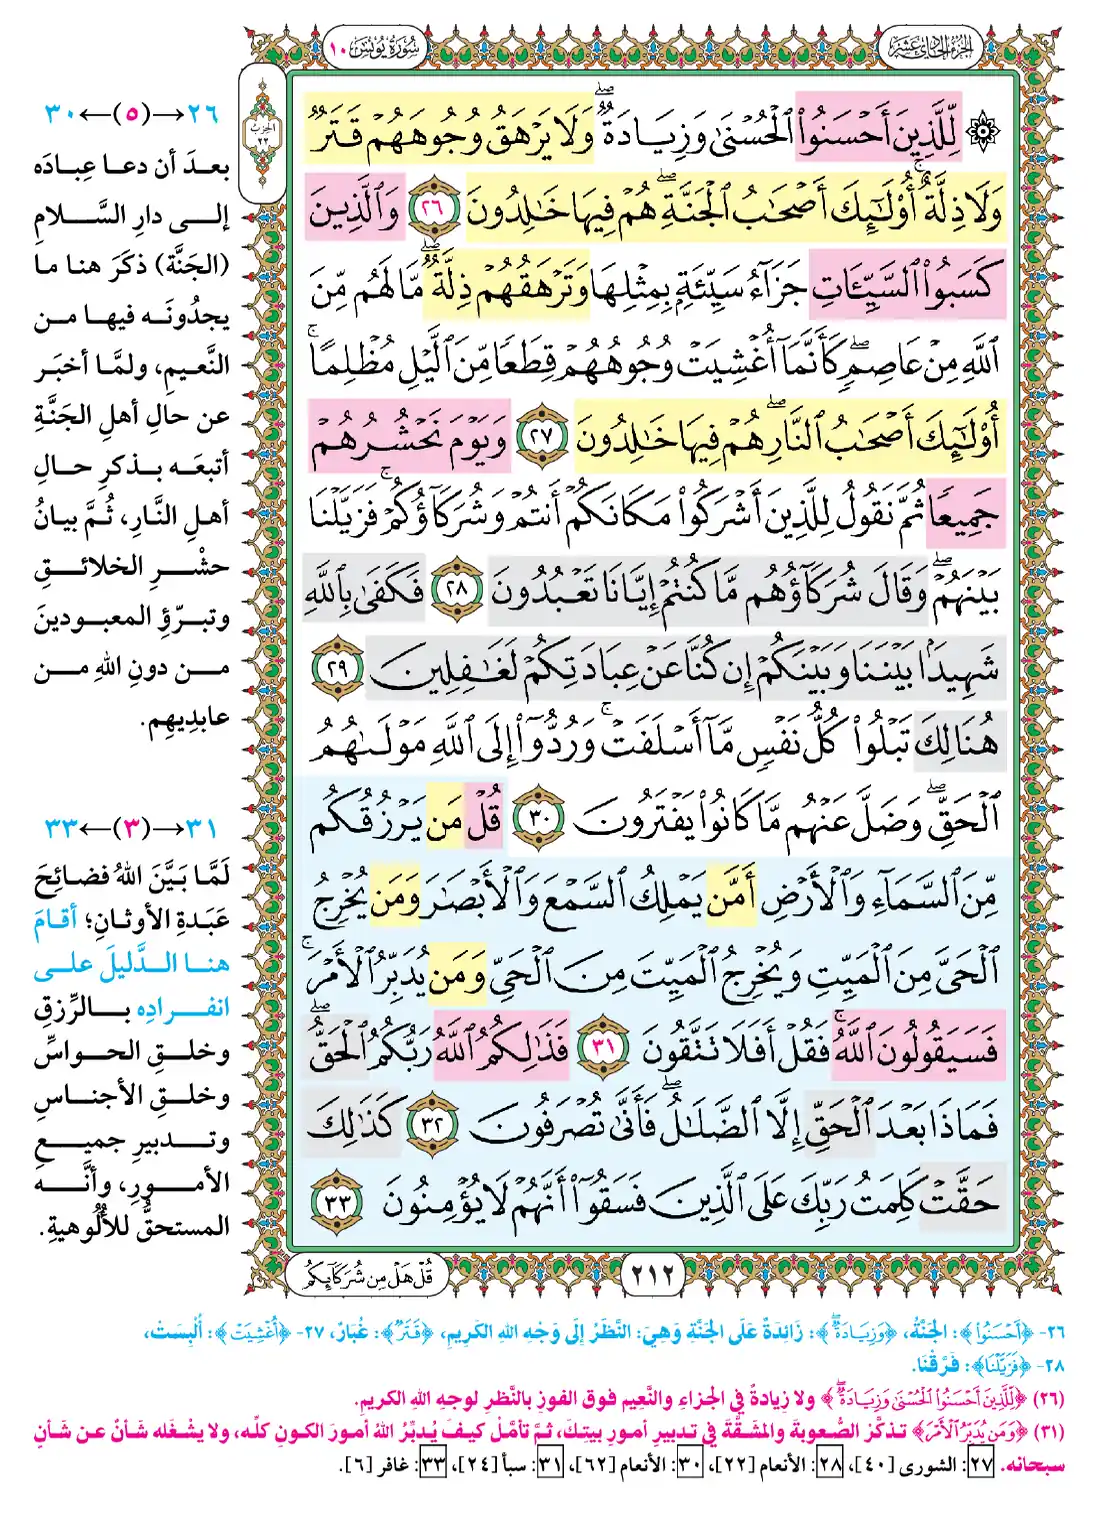 الجزء الحادي عشر
سورة يونس ١٠
الحزب
٢٢
۞ لِّلَّذِينَ أَحْسَنُوا۟ ٱلْحُسْنَىٰ وَزِيَادَةٌ ۖ وَلَا يَرْهَقُ وُجُوهَهُمْ قَتَرٌ
وَلَا ذِلَّةٌ ۚ أُو۟لَـٰٓئِكَ أَصْحَـٰبُ ٱلْجَنَّةِ ۖ هُمْ فِيهَا خَـٰلِدُونَ ٢٦ وَٱلَّذِينَ
كَسَبُوا۟ ٱلسَّيِّـَٔاتِ جَزَآءُ سَيِّئَةٍۭ بِمِثْلِهَا وَتَرْهَقُهُمْ ذِلَّةٌ ۖ مَّا لَهُم مِّنَ
ٱللَّهِ مِنْ عَاصِمٍ ۖ كَأَنَّمَآ أُغْشِيَتْ وُجُوهُهُمْ قِطَعًا مِّنَ ٱلَّيْلِ مُظْلِمًا ۚ
أُو۟لَـٰٓئِكَ أَصْحَـٰبُ ٱلنَّارِ ۖ هُمْ فِيهَا خَـٰلِدُونَ ٢٧ وَيَوْمَ نَحْشُرُهُمْ
جَمِيعًا ثُمَّ نَقُولُ لِلَّذِينَ أَشْرَكُوا۟ مَكَانَكُمْ أَنتُمْ وَشُرَكَآؤُكُمْ ۚ فَزَيَّلْنَا
بَيْنَهُمْ ۖ وَقَالَ شُرَكَآؤُهُم مَّا كُنتُمْ إِيَّانَا تَعْبُدُونَ ٢٨ فَكَفَىٰ بِٱللَّهِ
شَهِيدًۢا بَيْنَنَا وَبَيْنَكُمْ إِن كُنَّا عَنْ عِبَادَتِكُمْ لَغَـٰفِلِينَ ٢٩
هُنَالِكَ تَبْلُوا۟ كُلُّ نَفْسٍ مَّآ أَسْلَفَتْ ۚ وَرُدُّوٓا۟ إِلَى ٱللَّهِ مَوْلَىٰهُمُ
ٱلْحَقِّ ۖ وَضَلَّ عَنْهُم مَّا كَانُوا۟ يَفْتَرُونَ ٣٠ قُلْ مَن يَرْزُقُكُم
مِّنَ ٱلسَّمَآءِ وَٱلْأَرْضِ أَمَّن يَمْلِكُ ٱلسَّمْعَ وَٱلْأَبْصَـٰرَ وَمَن يُخْرِجُ
ٱلْحَىَّ مِنَ ٱلْمَيِّتِ وَيُخْرِجُ ٱلْمَيِّتَ مِنَ ٱلْحَىِّ وَمَن يُدَبِّرُ ٱلْأَمْرَ ۚ
فَسَيَقُولُونَ ٱللَّهُ ۚ فَقُلْ أَفَلَا تَتَّقُونَ ٣١ فَذَٰلِكُمُ ٱللَّهُ رَبُّكُمُ ٱلْحَقُّ ۖ
فَمَاذَا بَعْدَ ٱلْحَقِّ إِلَّا ٱلضَّلَـٰلُ ۖ فَأَنَّىٰ تُصْرَفُونَ ٣٢ كَذَٰلِكَ
حَقَّتْ كَلِمَتُ رَبِّكَ عَلَى ٱلَّذِينَ فَسَقُوٓا۟ أَنَّهُمْ لَا يُؤْمِنُونَ ٣٣
قُلْ هَلْ مِن شُرَكَآئِكُم
٢١٢
٢٦→(٥)←٣٠
بعدَ أن دعا عِبادَه
إلى دارِ السَّلامِ
(الجَنَّة) ذكَرَ هنا ما
يجدُونَه فيها من
النَّعيمِ، ولمَّا أخبَر
عن حالِ أهلِ الجَنَّةِ
أتبعَه بذكرِ حالِ
أهلِ النَّارِ، ثُمَّ بيانُ
حشْرِ الخلائقِ
وتبرّؤِ المعبودينَ
من دونِ اللهِ من
عابدِيهِم.
٣١→(٣)←٣٣
لَمَّا بَيَّنَ اللهُ فضائِحَ
عَبَدةِ الأوثانِ؛ أقامَ
هنا الدَّليلَ على
انفرادِه بالرِّزقِ
وخلقِ الحواسِّ
وخلقِ الأجناسِ
وتدبيرِ جميعِ
الأمورِ، وأنَّه
المستحقُّ للأُلُوهيةِ.
٢٦- ﴿أَحْسَنُوا۟﴾: الجَنَّةُ، ﴿وَزِيَادَةٌ﴾: زَائِدَةٌ عَلَى الجَنَّةِ وَهِيَ: النَّظَرُ إِلَى وَجْهِ اللهِ الكَرِيمِ، ﴿قَتَرٌ﴾: غُبَارٌ، ٢٧- ﴿أُغْشِيَتْ﴾: أُلْبِسَتْ،
٢٨- ﴿فَزَيَّلْنَا﴾: فَرَّقْنَا.
(٢٦) ﴿لِّلَّذِينَ أَحْسَنُوا۟ ٱلْحُسْنَىٰ وَزِيَادَةٌ﴾ ولا زيادةَ في الجزاءِ والنَّعِيم فوق الفوزِ بالنَّظرِ لوجهِ اللهِ الكريمِ.
(٣١) ﴿وَمَن يُدَبِّرُ ٱلْأَمْرَ﴾ تذكَّرْ الصُّعوبةَ والمشقَّةَ في تدبيرِ أمورِ بيتِكَ، ثمَّ تأمَّلْ كيفَ يُدبِّرُ اللهُ أمورَ الكونِ كلِّه، ولا يشْغَله شأنٌ عن شأنٍ
سبحانه. ٢٧: الشورى [٤٠]، ٢٨: الأنعام [٢٢]، ٣٠: الأنعام [٦٢]، ٣١: سبأ [٢٤]، ٣٣: غافر [٦].